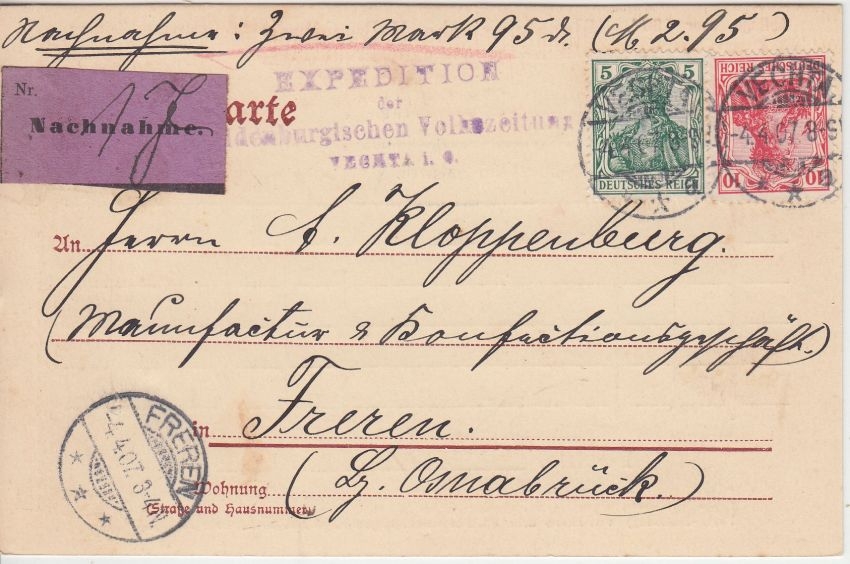 Nachnahme: Zwei Mark 95 d. (M 2.95)
Nr.
Nachnahme.
arte
EXPEDITION
der
ldenburgischen Volkszeitung
VECHTA i. O.
5 5
DEUTSCHES REICH
DEUTSCHES REICH
10 10
VECHTA
4.4.07. 8-9V
VECHTA
4.4.07. 8-9V
a
An Herrn C. Kloppenburg.
(Manufactur & Konfectionsgeschäft.)
in Freren.
Wohnung (Bz. Osnabrück.)
(Straße und Hausnummer)
FREREN
4.4.07. 3-4N